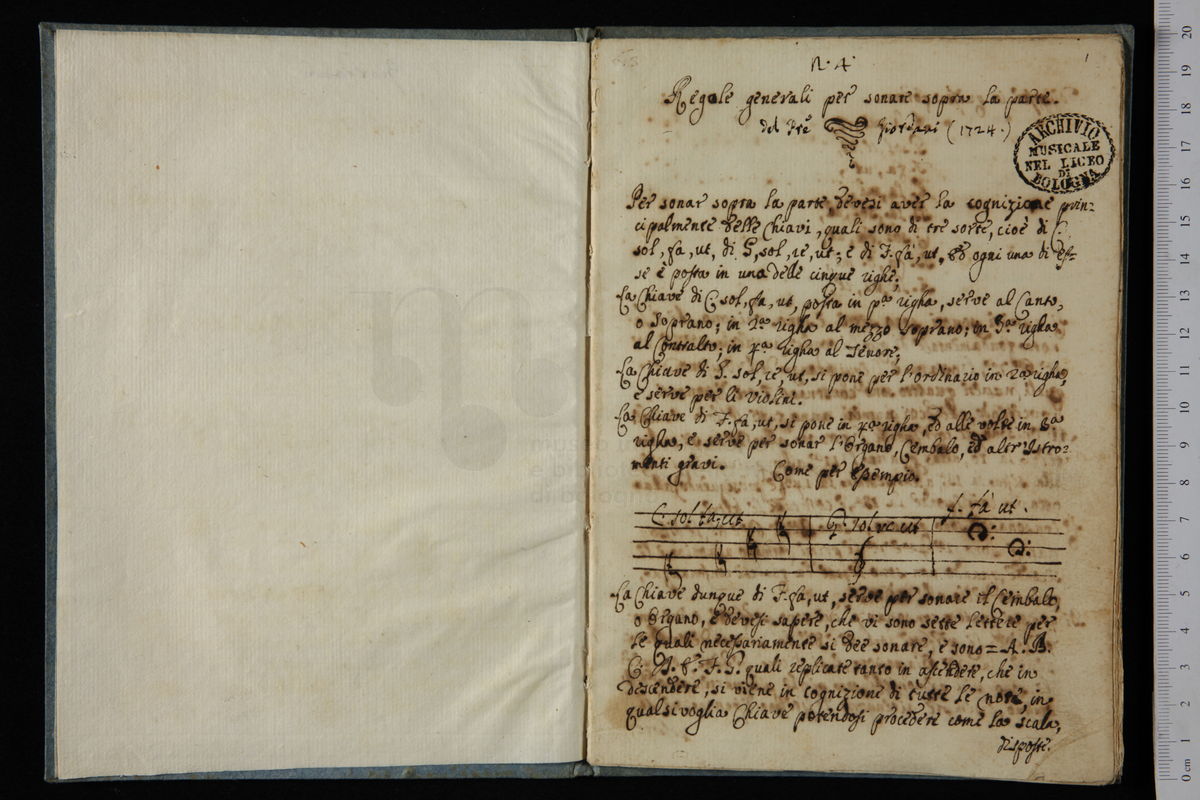 N. 4.
1
Regole generali per sonare sopra la parte.
del Pre Giordani (1724.)
ARCHIVIO
MUSICALE
NEL LICEO
DI
BOLOGNA
Per sonar sopra la parte, devesi aver la cognizione prin=
cipalmente delle Chiavi, quali sono di tre sorte, cioè di C.
sol, fa, ut, di G, sol, re, ut; e di F. fa, ut, ed ogni una di es=
se è posta in una delle cinque righe;
La Chiave di C. sol, fa, ut, posta in pa righa, serve al Canto,
o Soprano; in 2a righa al mezzo soprano; in 3a righa
al Contralto; in 4a righa al Tenore;
La Chiave di G. sol, re, ut, si pone per l'ordinario in 2a righa,
e serve per li violini.
La Chiave di F. fa, ut, si pone in 4a righa, ed alle volte in 3a
righa, e serve per sonar l'Organo, Cembalo, ed altri Istro=
menti gravi. Come per Esempio.
C. sol fa, ut G. sol re ut f. fà ut.
La Chiave dunque di F. fa, ut, serve per sonare il Cembalo,
o Organo, e devesi sapere, che vi sono sette lettere per
le quali necessariamente si dee sonare, e sono = A. B.
C. D. E. F. G. quali replicate tanto in ascendere, che in
descendere, si viene in cognizione di tutte le note, in
qualsivoglia Chiave potendosi procedere come la scala,
disposte.
museo
e biblio
di bologna
0 cm 1 2 3 4 5 6 7 8 9 10 11 12 13 14 15 16 17 18 19 20